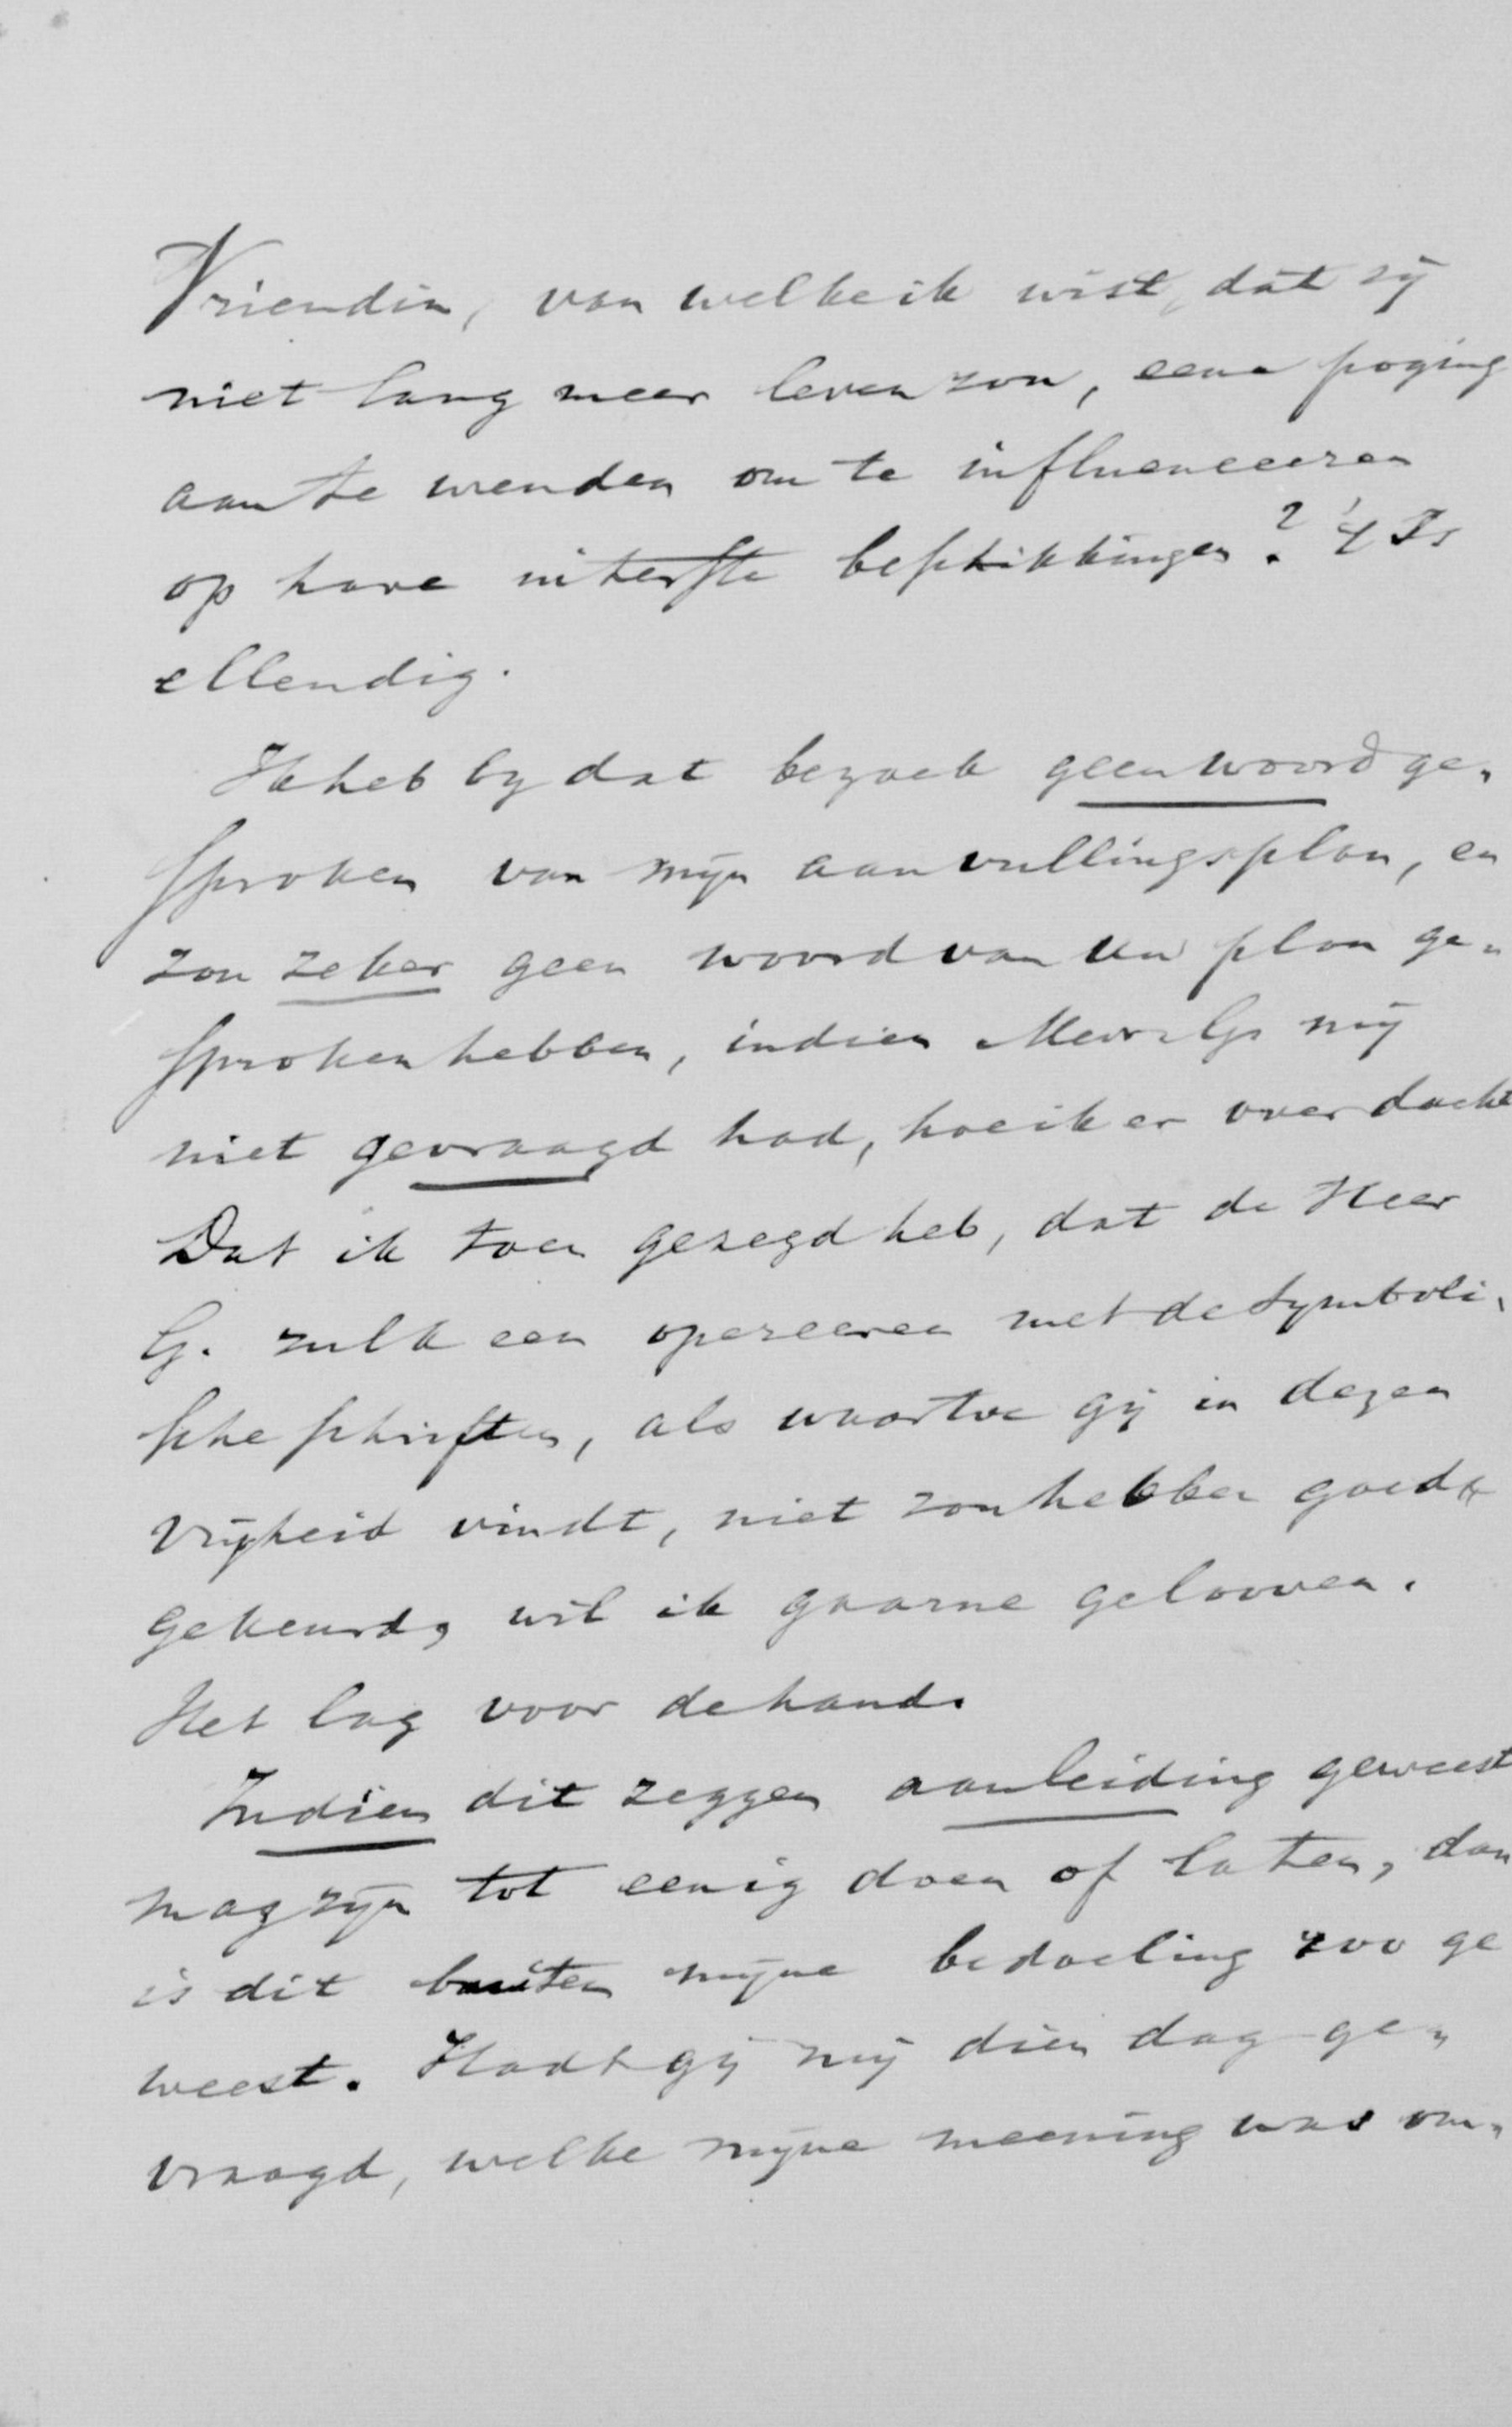 Vriendin, van welke ik wist, dat zij
niet lang meer leven zou, eene poging
aan te wenden om te influenceeren
op hare uiterste beschikkingen? 't Is
ellendig.
Ik heb by dat bezoek geen woord ge-
sproken van mijn aanvullingsplan, en
zou zeker geen woord van Uw plan ge-
sproken hebben, indien Mevr G. mij
niet gevraagd had, hoe ik er over dacht
Dat ik toen gezegd heb, dat de Heer
G. zulk een opereeren met de Symboli-
sche schriften, als waartoe gij in dezen
vrijheid vindt, niet zou hebben goed
gekeurd, wil ik gaarne gelooven.
Het lag voor de hand.
Indien dit zeggen aanleiding geweest
mag zijn tot eenig doen of laten, dan
is dit buiten mijne bedoeling zoo ge
weest. Hadt gij mij dien dag ge-
vraagd, welke mijne meening was om-